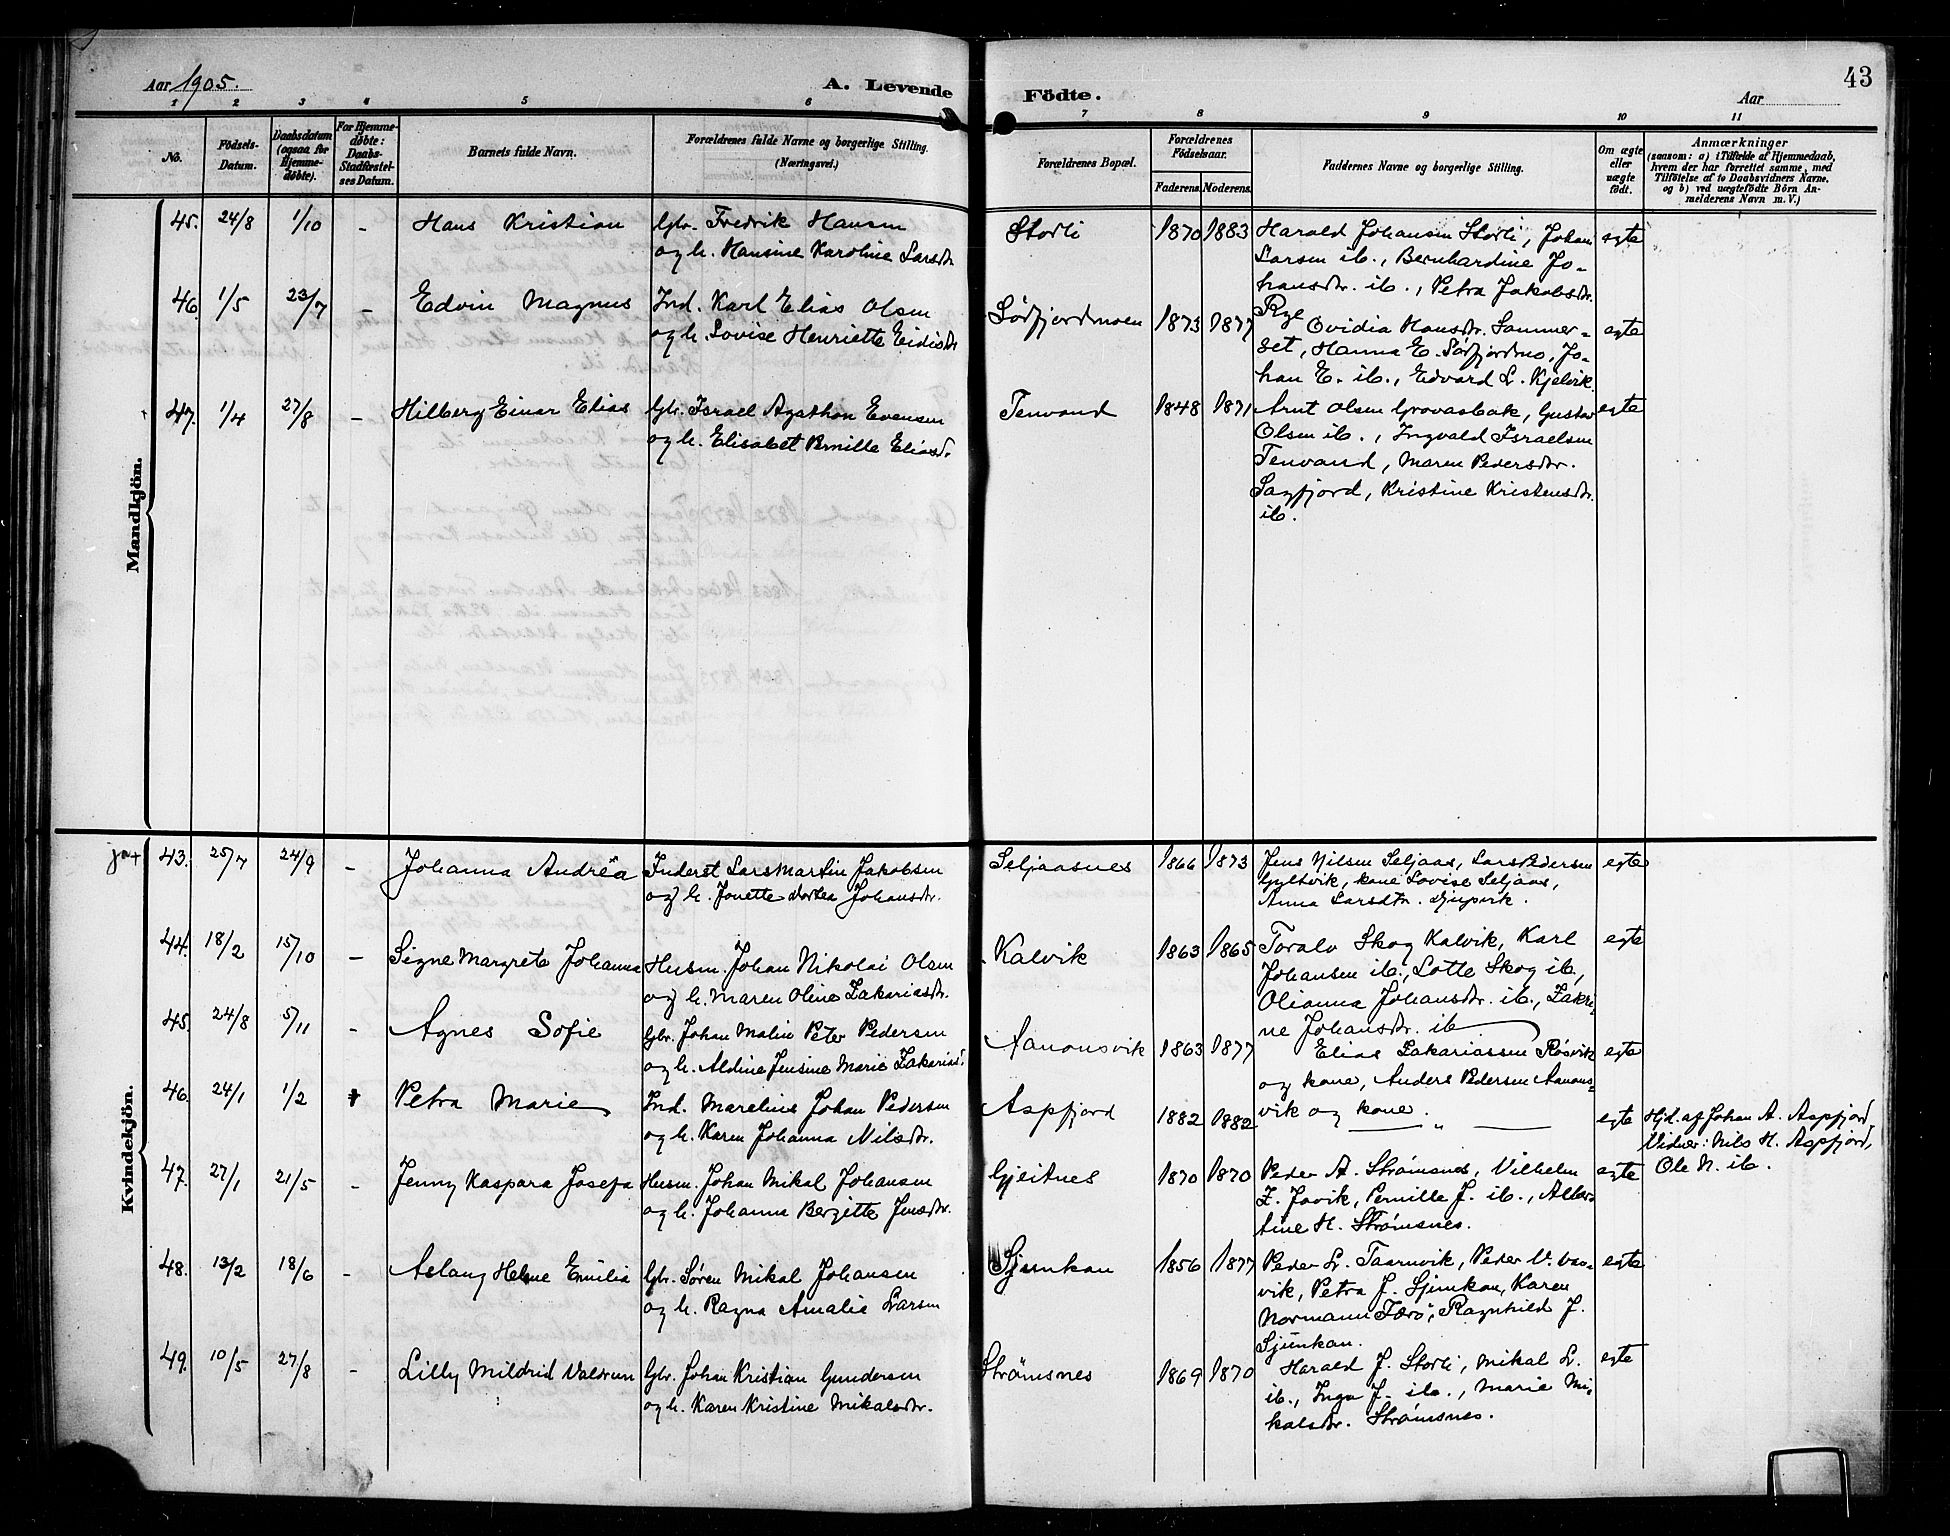 43
Aar 1905.
A. Levende
Födte.
Aar
1 2 3 4 5 6 7 8 9 10 11
No.
Födsels-
Datum.
Daabsdatum
(ogsaa for
Hjemme-
döbte).
For Hjemme-
döbte:
Daabs-
Stadfæstel-
ses Datum.
Barnets fulde Navn.
Forældrenes fulde Navne og borgerlige Stilling.
(Næringsvei.)
Forældrenes Bopæl.
Forældrenes
Födselsaar.
Faderens.
Moderens.
Faddernes Navne og borgerlige Stilling.
Om ægte
eller
uægte
födt.
Anmærkninger
(saasom: a) i Tilfælde af Hjemmedaab,
hvem der har forrettet samme, med
Tilföielse af to Daabsvidners Navne.
og b) ved uægtefödte Börn An-
melderens Navn m. V.)
Mandkjön.
45. 24/8 1/10 - Hans Kristian
Gbr. Fredrik Hansen
og h. Hansine Karoline Larsdtr.
Storli 1870 1883
Harald Johansen Storli, Johan
Larsen ib., Bernhardine Jo-
hansdtr. ib., Petra Jakobsdtr.
Rye
egte
46. 1/5 23/7 - Edvin Magnus
Ind. Karl Elias Olsen
og h. Lovise Henriette Eidisdtr
Sørfjordmoen 1873 1877
Ovidia Hansdtr. Sommer-
set, Hanna E. Sørfjordmo, Jo-
han E. ib., Edvard L. Kjelvik.
egte
47. 1/4 27/8 - Hilberg Einar Elias
Gbr. Israel Agathon Evensen
og h. Elisabet Pernille Eliasd.
Tenvand 1848 1871
Arnt Olsen Grovasbak, Gustav
Olsen ib., Ingvald Israelsen
Tenvand, Maren Pedersdtr.
Sagfjord, Kristine Kristensdtr.
ib.
egte
Kvindekjön.
ja+ 43. 25/7 24/9 - Johanna Andrea
Inderst Lars Martin Jakobsen
og h. Jonette Dortea Johansdtr.
Seljaasnes 1866 1873
Jens Nilsen Seljaas, Lars Pedersen
Gyltvik, kone Lovise Seljaas,
Anna Larsdtr. Djupvik.
egte
44. 18/2 15/10 - Signe Margrete Johanna
Husm. Johan Nikolai Olsen
og h. Maren Oline Zakariasdtr.
Kalvik 1863 1865
Toralv Skog Kalvik, Karl
Johansen ib., Lotte Skog ib,
Olianna Johansdtr. ib., Zakri-
ne Johansdtr. ib
egte
45. 24/8 5/11 - Agnes Sofie
Gbr. Johan Malin Peter Pedersen
og h. Aldine Jensine Marie Zakariasd.
Aanonsvik 1863 1877
Elias Zakariassen Røsvik
og kone, Anders Pedersen Aanons-
vik og kone.
egte
46. 24/1 1/2 + Petra Marie
Ind. Marelius Johan Pedersen
og h. Karen Johanna Nilsdtr.
Aspfjord 1882 1882
— " —
egte
Hjd. af Johan A. Aspfjord
Vidner: Nils H. Aspfjord,
Ole N. ib.
47. 27/1 21/5 - Jenny Kaspara Josefa
Husm. Johan Mikal Johansen
og h. Johanna Bergitte Jensdtr.
Gjeitnes 1870 1870
Peder A. Strømsnes, Vilhelm
Z. Jovik, Pernille J. ib., Alber-
tine H. Strømsnes.
egte
48. 13/2 18/6 - Aslaug Helene Emilia
Gbr. Søren Mikal Johansen
og h. Ragna Amalie Larsen
Sjunkan 1856 1877
Peder L. Taarnvik, Peder V. Vas-
vik, Petra J. Sjunkan, Karen
Normann Færø, Ragnhild J.
Sjunkan.
egte
49. 10/5 27/8 - Lilly Mildrid Valdrun
Gbr. Johan Kristian Gundersen
og h. Karen Kristine Mikalsdtr.
Strømsnes 1869 1870
Harald J. Storli, Mikal L.
ib., Inga J. ib., Marie Mi-
kalsdtr. Strømsnes.
egte